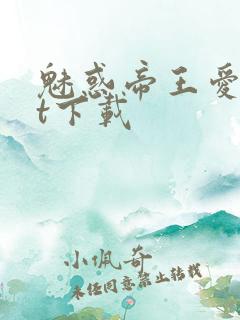 魅惑帝王爱
t下载
小佩奇
未经同意禁止转载